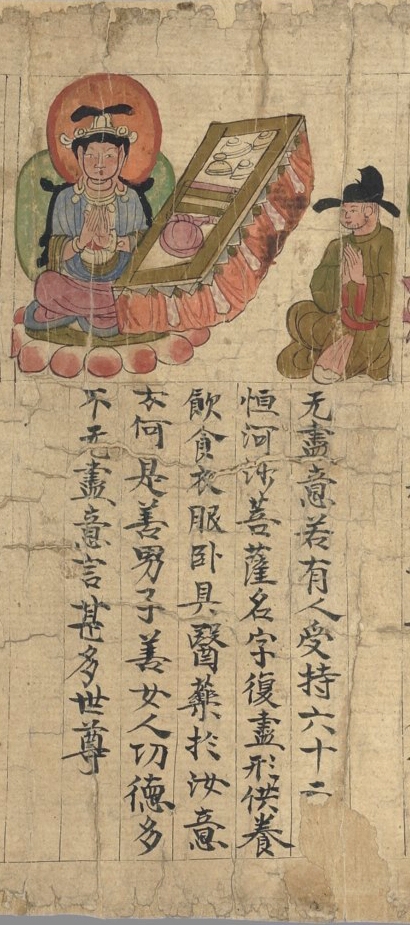 无盡意若有人受持六十二
恒河沙菩薩名字復盡形供養
飲食衣服卧具醫藥於汝意
云何是善男子善女人功德多
不无盡意言甚多世尊